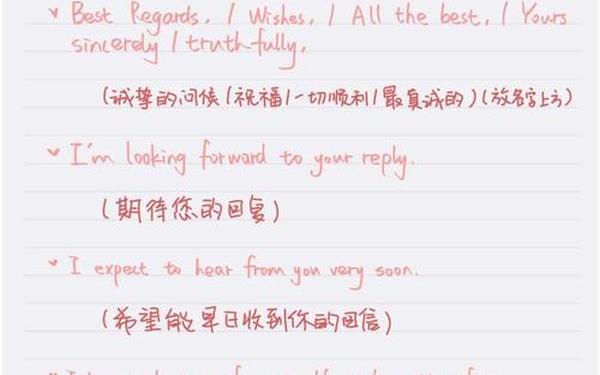 Best Regards, / Wishes, / All the best, / Yours
sincerely / truthfully,
(诚挚的问候/祝福/一切顺利/最真诚的)(放名字上方)
I'm looking forward to your reply.
(期待您的回复)
I expect to hear from you very soon.
(希望能早日收到你的回信)